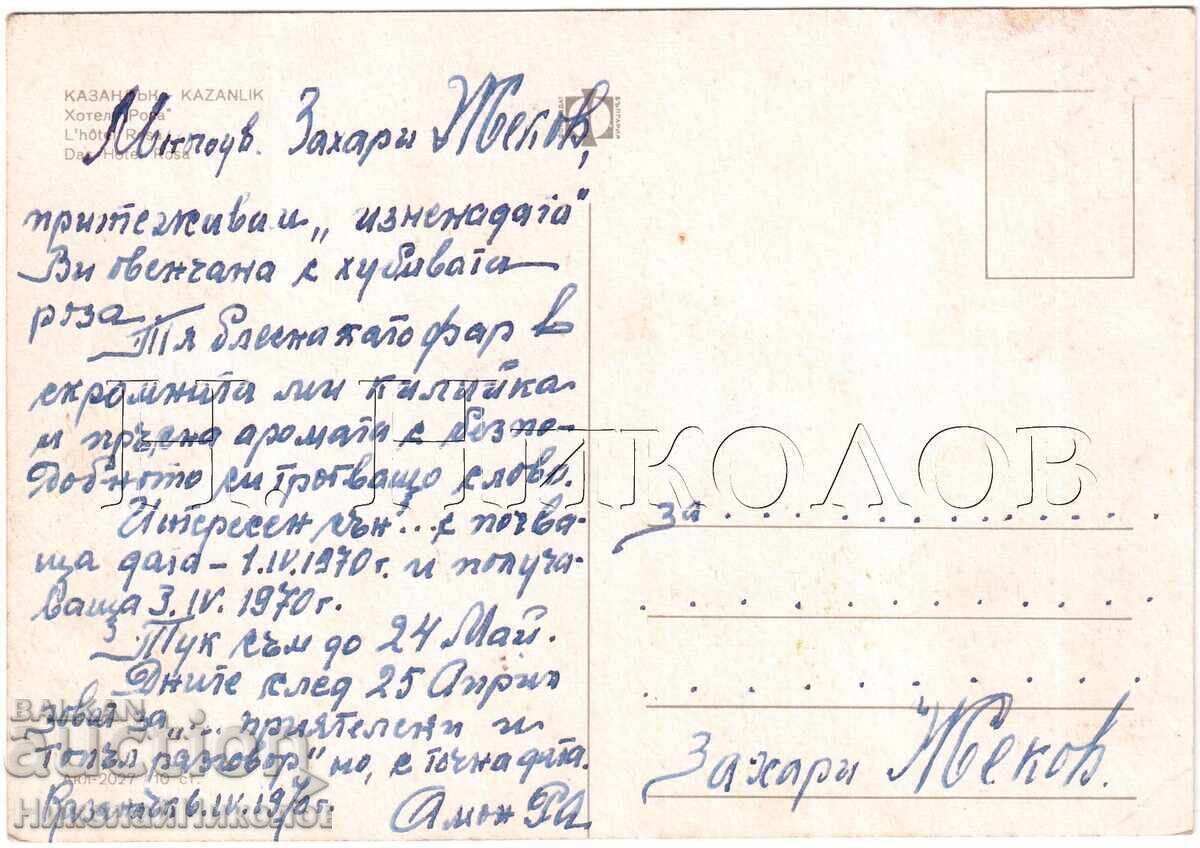 КАЗАНЛЪК - KAZANLIK
Хотел "Роза"
L'hôtel Rosa
Das Hotel Rosa
БЪЛГАРИЯ
Многоув. Захари Жеков,
притежавам „изненадата"
Ви овенчана с хубавата
роза.
Тя блесна като фар в
скромната ми килийка
и пръсна аромата с безпо-
добното си трогващо слово.
Интересен сън... с почва-
ща дата – 1.IV.1970 г. и получа-
ваща 3.IV.1970 г.
Тук съм до 24 Май.
Дните след 25 Април
зоват за „... приятелски и
топъл разговор" но, с точна дата.
Казанлък 6.IV.1970 г.
Амон Ра
за
Захари Жеков.
Акл-2027 10 ст.
Н. НИКОЛОВ
BALKAN
auction
НиколайНиколов